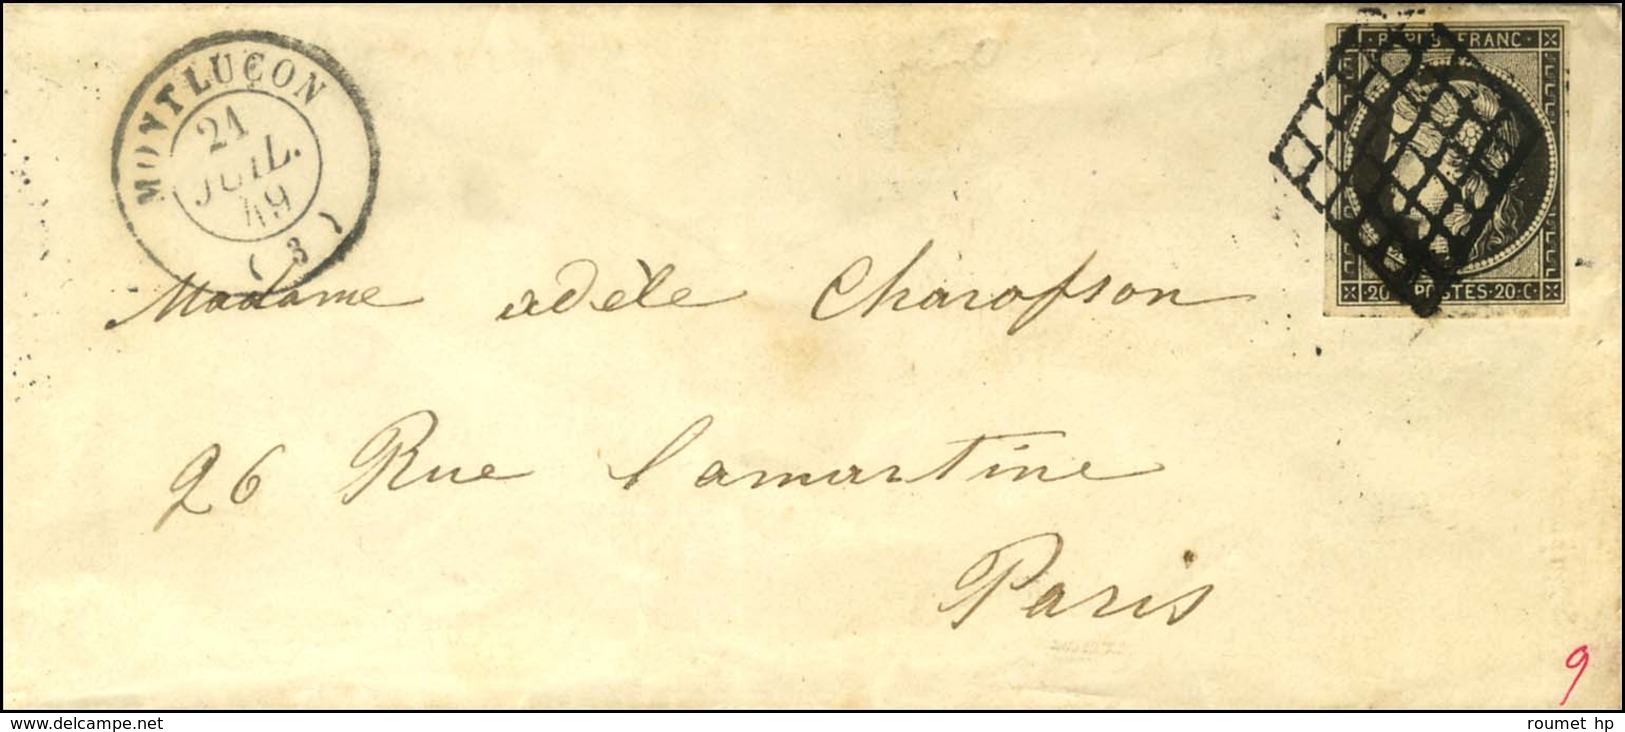 MONTLUÇON
21
JUIL.
49
(3)
REPUB. FRANC.
20 C. POSTES 20 C.
Madame adèle Charosson
26 Rue Lamartine
Paris
9
www.delcampe.net
roumet hp